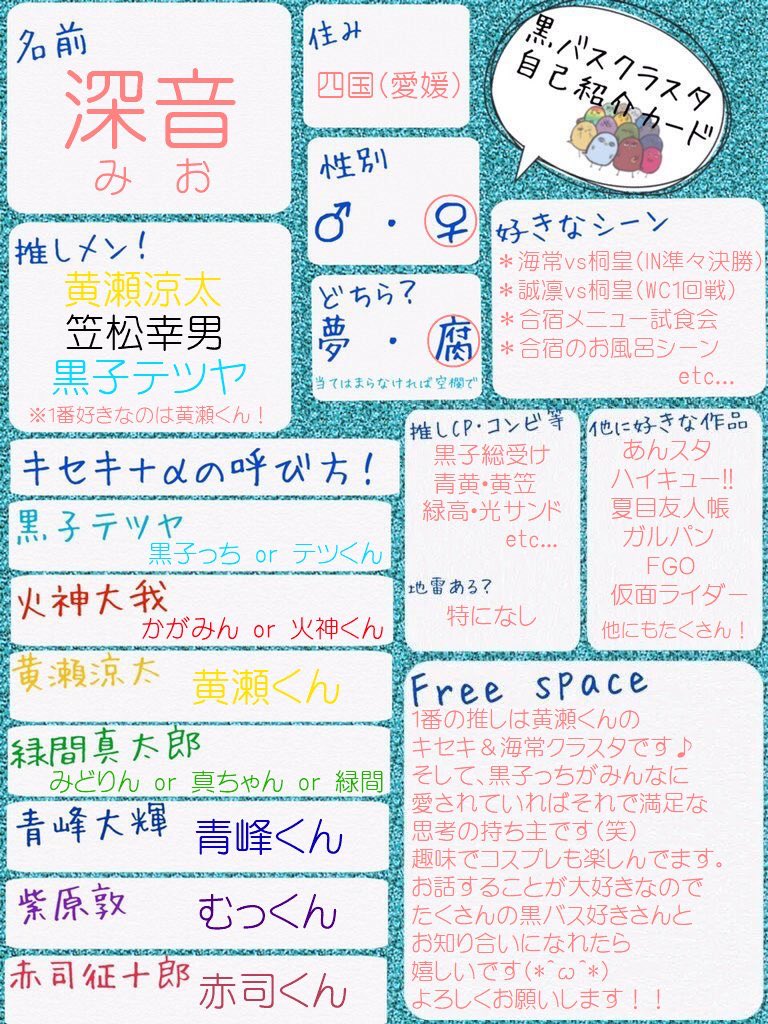 黒バスクラスタ
自己紹介カード
名前
深音
みお
住み
四国(愛媛)
性別
♂・♀
どちら?
夢・腐
当てはまらなければ空欄で
推しメン!
黄瀬涼太
笠松幸男
黒子テツヤ
※1番好きなのは黄瀬くん!
好きなシーン
*海常vs桐皇(IN準々決勝)
*誠凛vs桐皇(WC1回戦)
*合宿メニュー試食会
*合宿のお風呂シーン
etc...
キセキ+αの呼び方!
黒子テツヤ
黒子っち or テツくん
火神大我
かがみん or 火神くん
黄瀬涼太
黄瀬くん
緑間真太郎
みどりん or 真ちゃん or 緑間
青峰大輝
青峰くん
紫原敦
むっくん
赤司征十郎
赤司くん
推しCP・コンビ等
黒子総受け
青黄・黄笠
緑高・光サンド
etc...
地雷ある?
特になし
他に好きな作品
あんスタ
ハイキュー!!
夏目友人帳
ガルパン
FGO
仮面ライダー
他にもたくさん!
Free space
1番の推しは黄瀬くんの
キセキ&海常クラスタです♪
そして、黒子っちがみんなに
愛されていればそれで満足な
思考の持ち主です(笑)
趣味でコスプレも楽しんでます。
お話することが大好きなので
たくさんの黒バス好きさんと
お知り合いになれたら
嬉しいです(*^ω^*)
よろしくお願いします!!